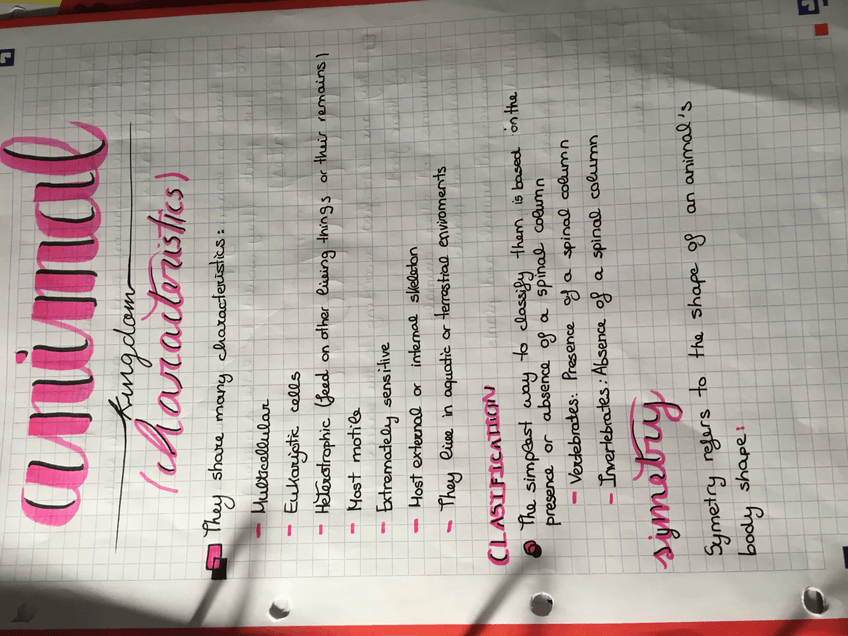 animal
Kingdom
(characteristics)
They share many characteristics:
- Multicellular
- Eukaryotic cells
- Heterotrophic (feed on other living things or their remains)
- Most motile
- Extremately sensitive
- Most external or internal skeleton
- They live in aquatic or terrestrial enviroments
CLASTIFICATION
The simplest way to classify them is based on the
presence or absence of a spinal column
- Vertebrates: Presence of a spinal column
- Invertebrates: Absence of a spinal column
symetry
Symetry refers to the shape of an animal's
body shape!